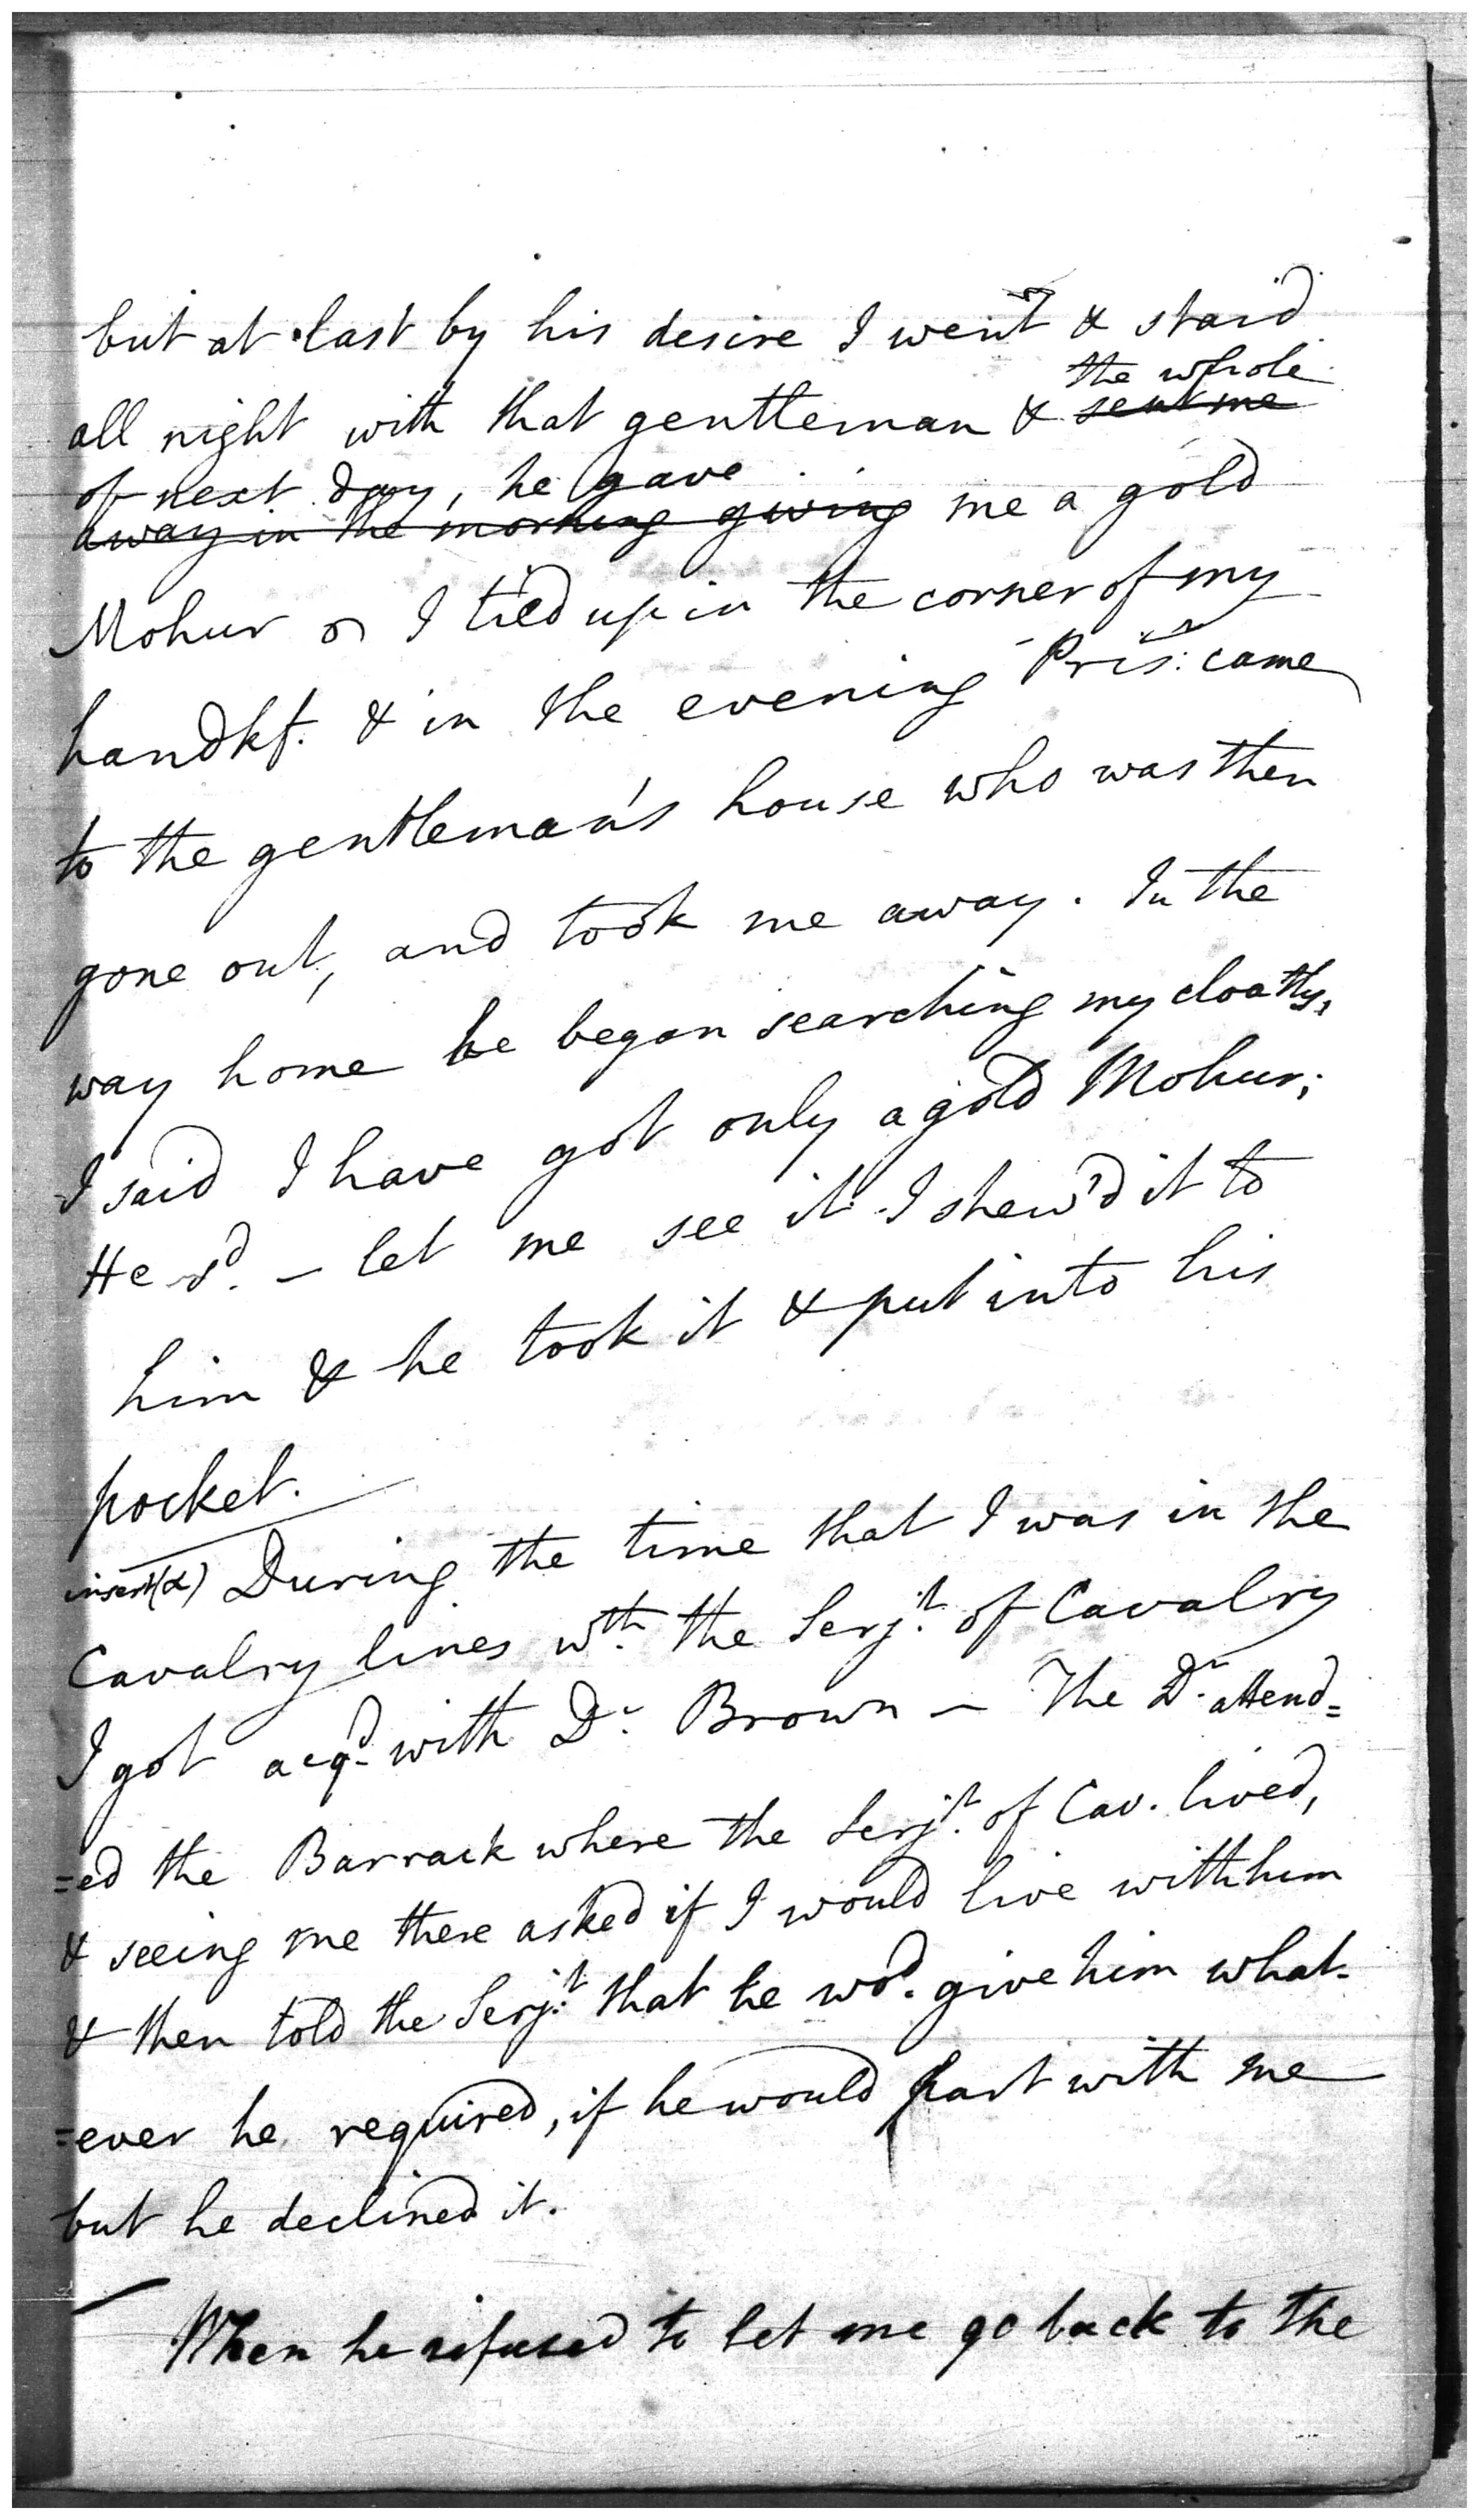 but at last by his desire I went & staid
the whole
all night with that gentleman & sent me
of next day, he gave
away in the morning giving me a gold
Mohur I tied up in the corner of my
handkf. & in the evening Pris.r came
to the gentleman's house who was then
gone out, and took me away. In the
way home he began searching my cloaths,
I said I have got only a gold Mohur;
He sd. - let me see it. I shew'd it to
him & he took it & put into his
pocket.
insert (x) During the time that I was in the
Cavalry lines wth. the Serjt. of Cavalry
I got acqd. with Dr. Brown - The Dr. attend=
=ed the Barrack where the Serjt. of Cav. lived,
& seeing me there asked if I would live with him
& then told the Serjt. that he wod. give him what-
=ever he required, if he would part with me
but he declined it.
When he refused to let me go back to the